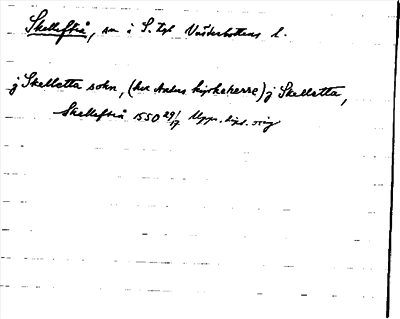 Skellefteå, sn i S. tpl Västerbottens l.
j Skelletta sokn, (her Anders kyrkeherre) j Skelletta,
Skellefteå 1550 29/7 Uppr. dipl. orig